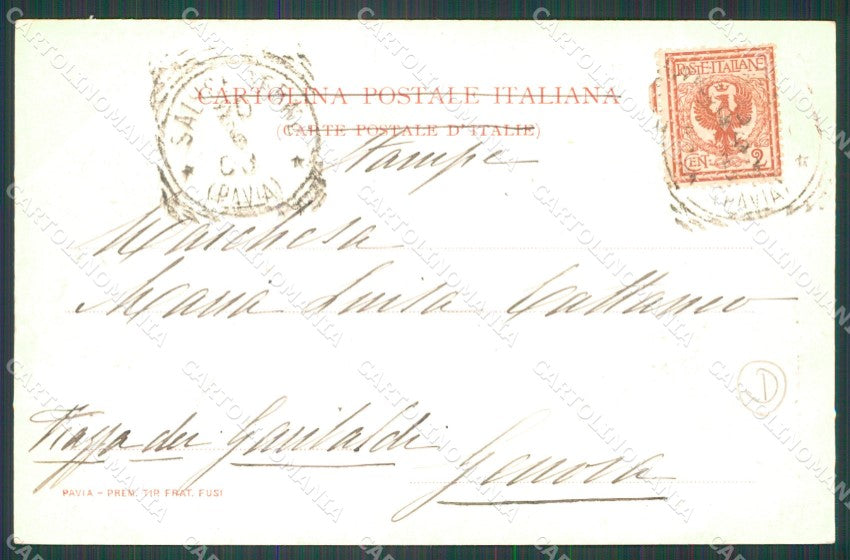 CARTOLINA POSTALE ITALIANA
(CARTE POSTALE D'ITALIE)
POSTE ITALIANE
CEN 2
SALICE
(PAVIA)
(PAVIA)
Stampe
Marchesa
Maria Luisa Cattaneo
Piazza dei Garibaldi
Genova
PAVIA – PREM. TIP. FRAT. FUSI
CARTOLINOMANIA